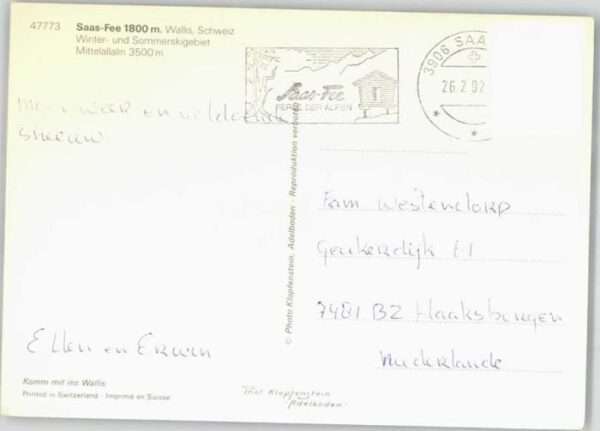 47773 Saas-Fee 1800 m, Wallis, Schweiz
Winter- und Sommerskigebiet
Mittelallalin 3500 m
Saas-Fee
PERLE DER ALPEN
3906 SAA
26.2.92
en
sneeuw
Ellen en Erwin
Komm mit ins Wallis
Printed in Switzerland - Imprimé en Suisse
© Photo Klopfenstein, Adelboden - Reproduktion verboten
Photo Klopfenstein
Adelboden
Fam Westendorp
7481 BZ Haaksbergen